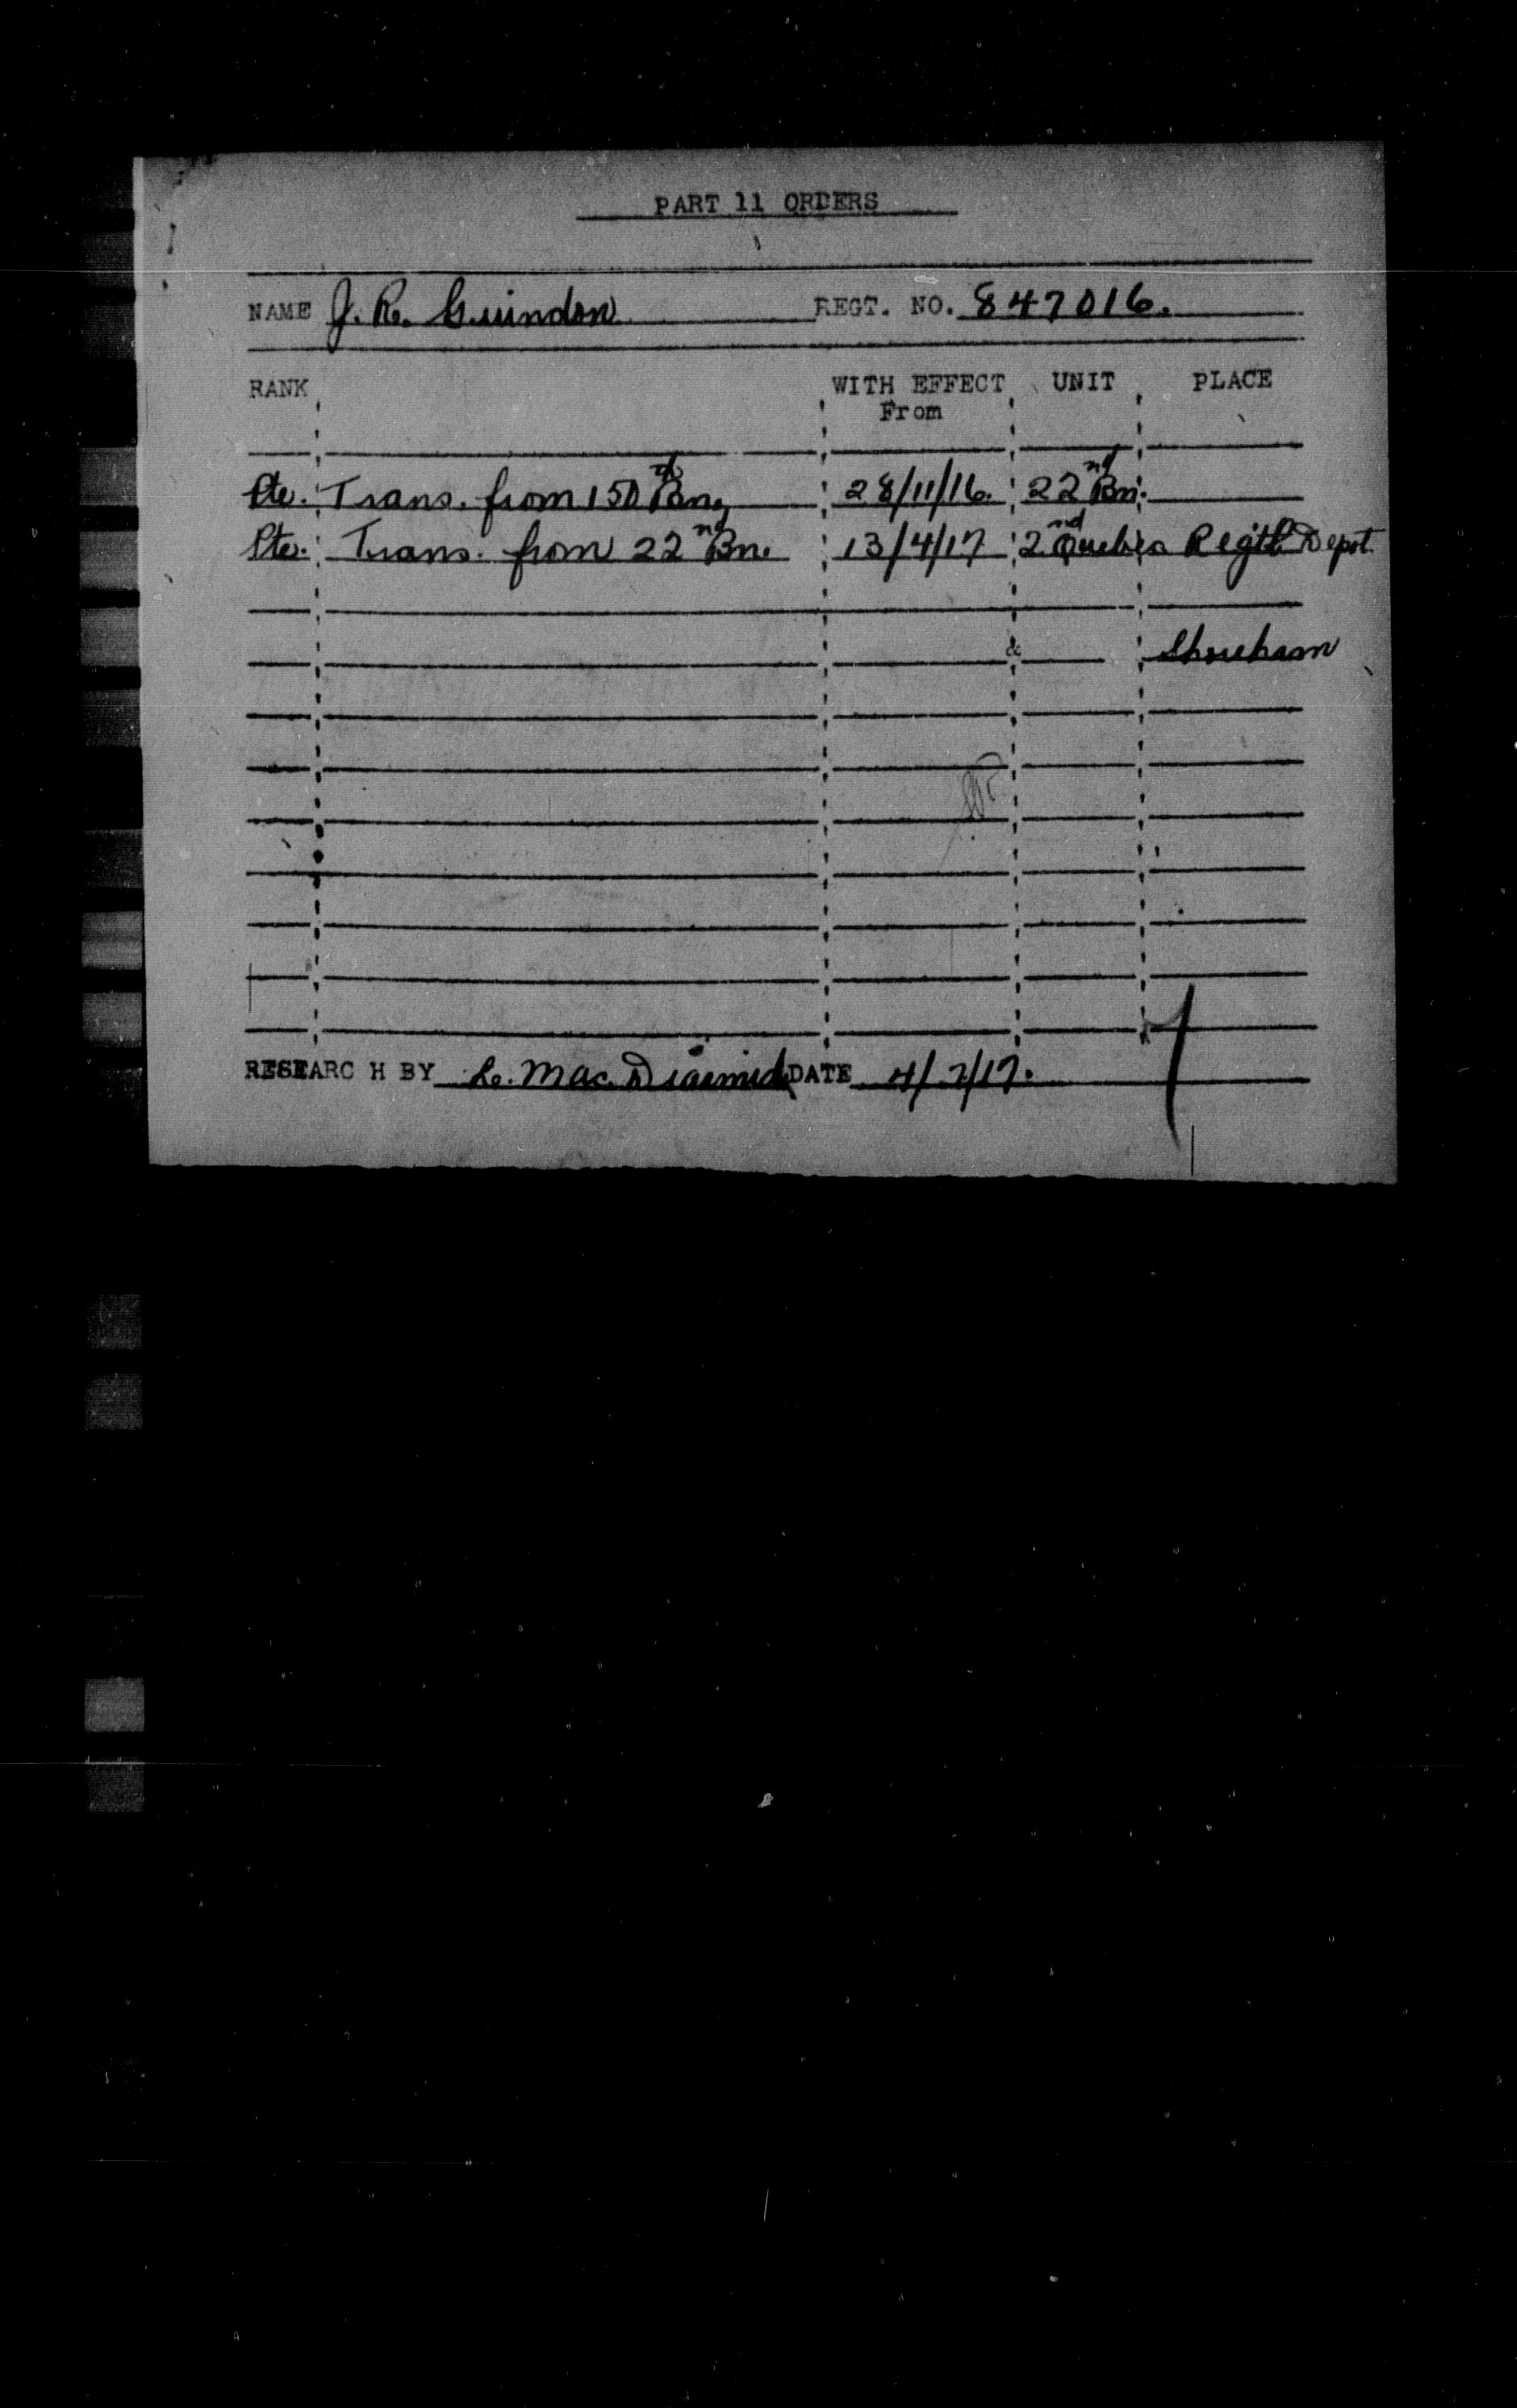 PART 11 ORDERS
NAME J. R. Guindon REGT. NO. 847016.
RANK WITH EFFECT UNIT PLACE
From
Pte. Trans. from 150th Bn, 28/11/16. 22nd Bn.
Pte. Trans. from 22nd Bn. 13/4/17 2nd Quebec Regtl. Depot
& Shoreham
RESEARC H BY L. Mac Diarmid DATE 4/7/17.